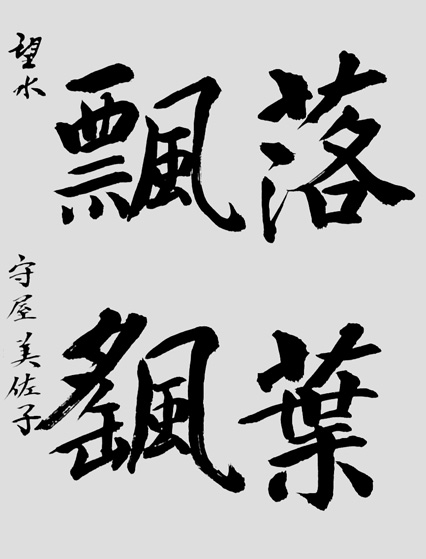 落葉
飄颻
望水 守屋美佐子